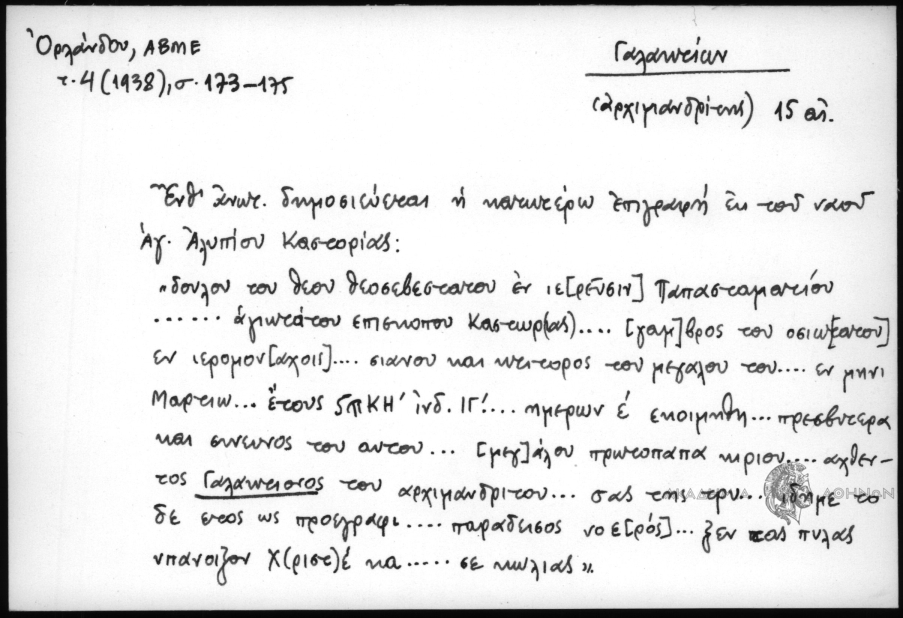 Ὀρλάνδου, ΑΒΜΕ
τ. 4 (1938), σ. 173–175
Γαλακτείων
(ἀρχιμανδρίτης) 15 αἰ.
Ἔνθ' ἄνωτ. δημοσιεύεται ἡ κατωτέρω ἐπιγραφή ἐκ τοῦ ναοῦ
Ἁγ. Ἀλυπίου Καστορίας:
"δουλου του θεου θεοσεβεστατου ἐν ιε[ρεῦσιν] Παπασταματίου
...... ἁγιωτάτου επισκοπου Καστωρ(ιας).... [γαμ]βρος του οσιω[τατου]
εν ιερομον[άχοις].... σιανου και κτιτορος του μεγαλου του.... εν μηνι
Μαρτιω... ἔτους ϛπΚΗ' ἰνδ. ΙΓ'... ημερων έ εκοιμηθη... πρεσβυτερα
και συνευνος του αυτου... [μεγ]άλου πρωτοπαπα κυριου.... αχθεν–
τος του αρχιμανδριτου... σας της τρυ... ιδημε το
δε ετος ως προεγραφι.... παραδεισος νοε[ρός]... ξεν τας πυλας
υπανοιξον Χ(ριστ)έ κα..... σε κωλιας".
ΑΚΑΔΗΜΙΑ ΑΘΗΝΩΝ